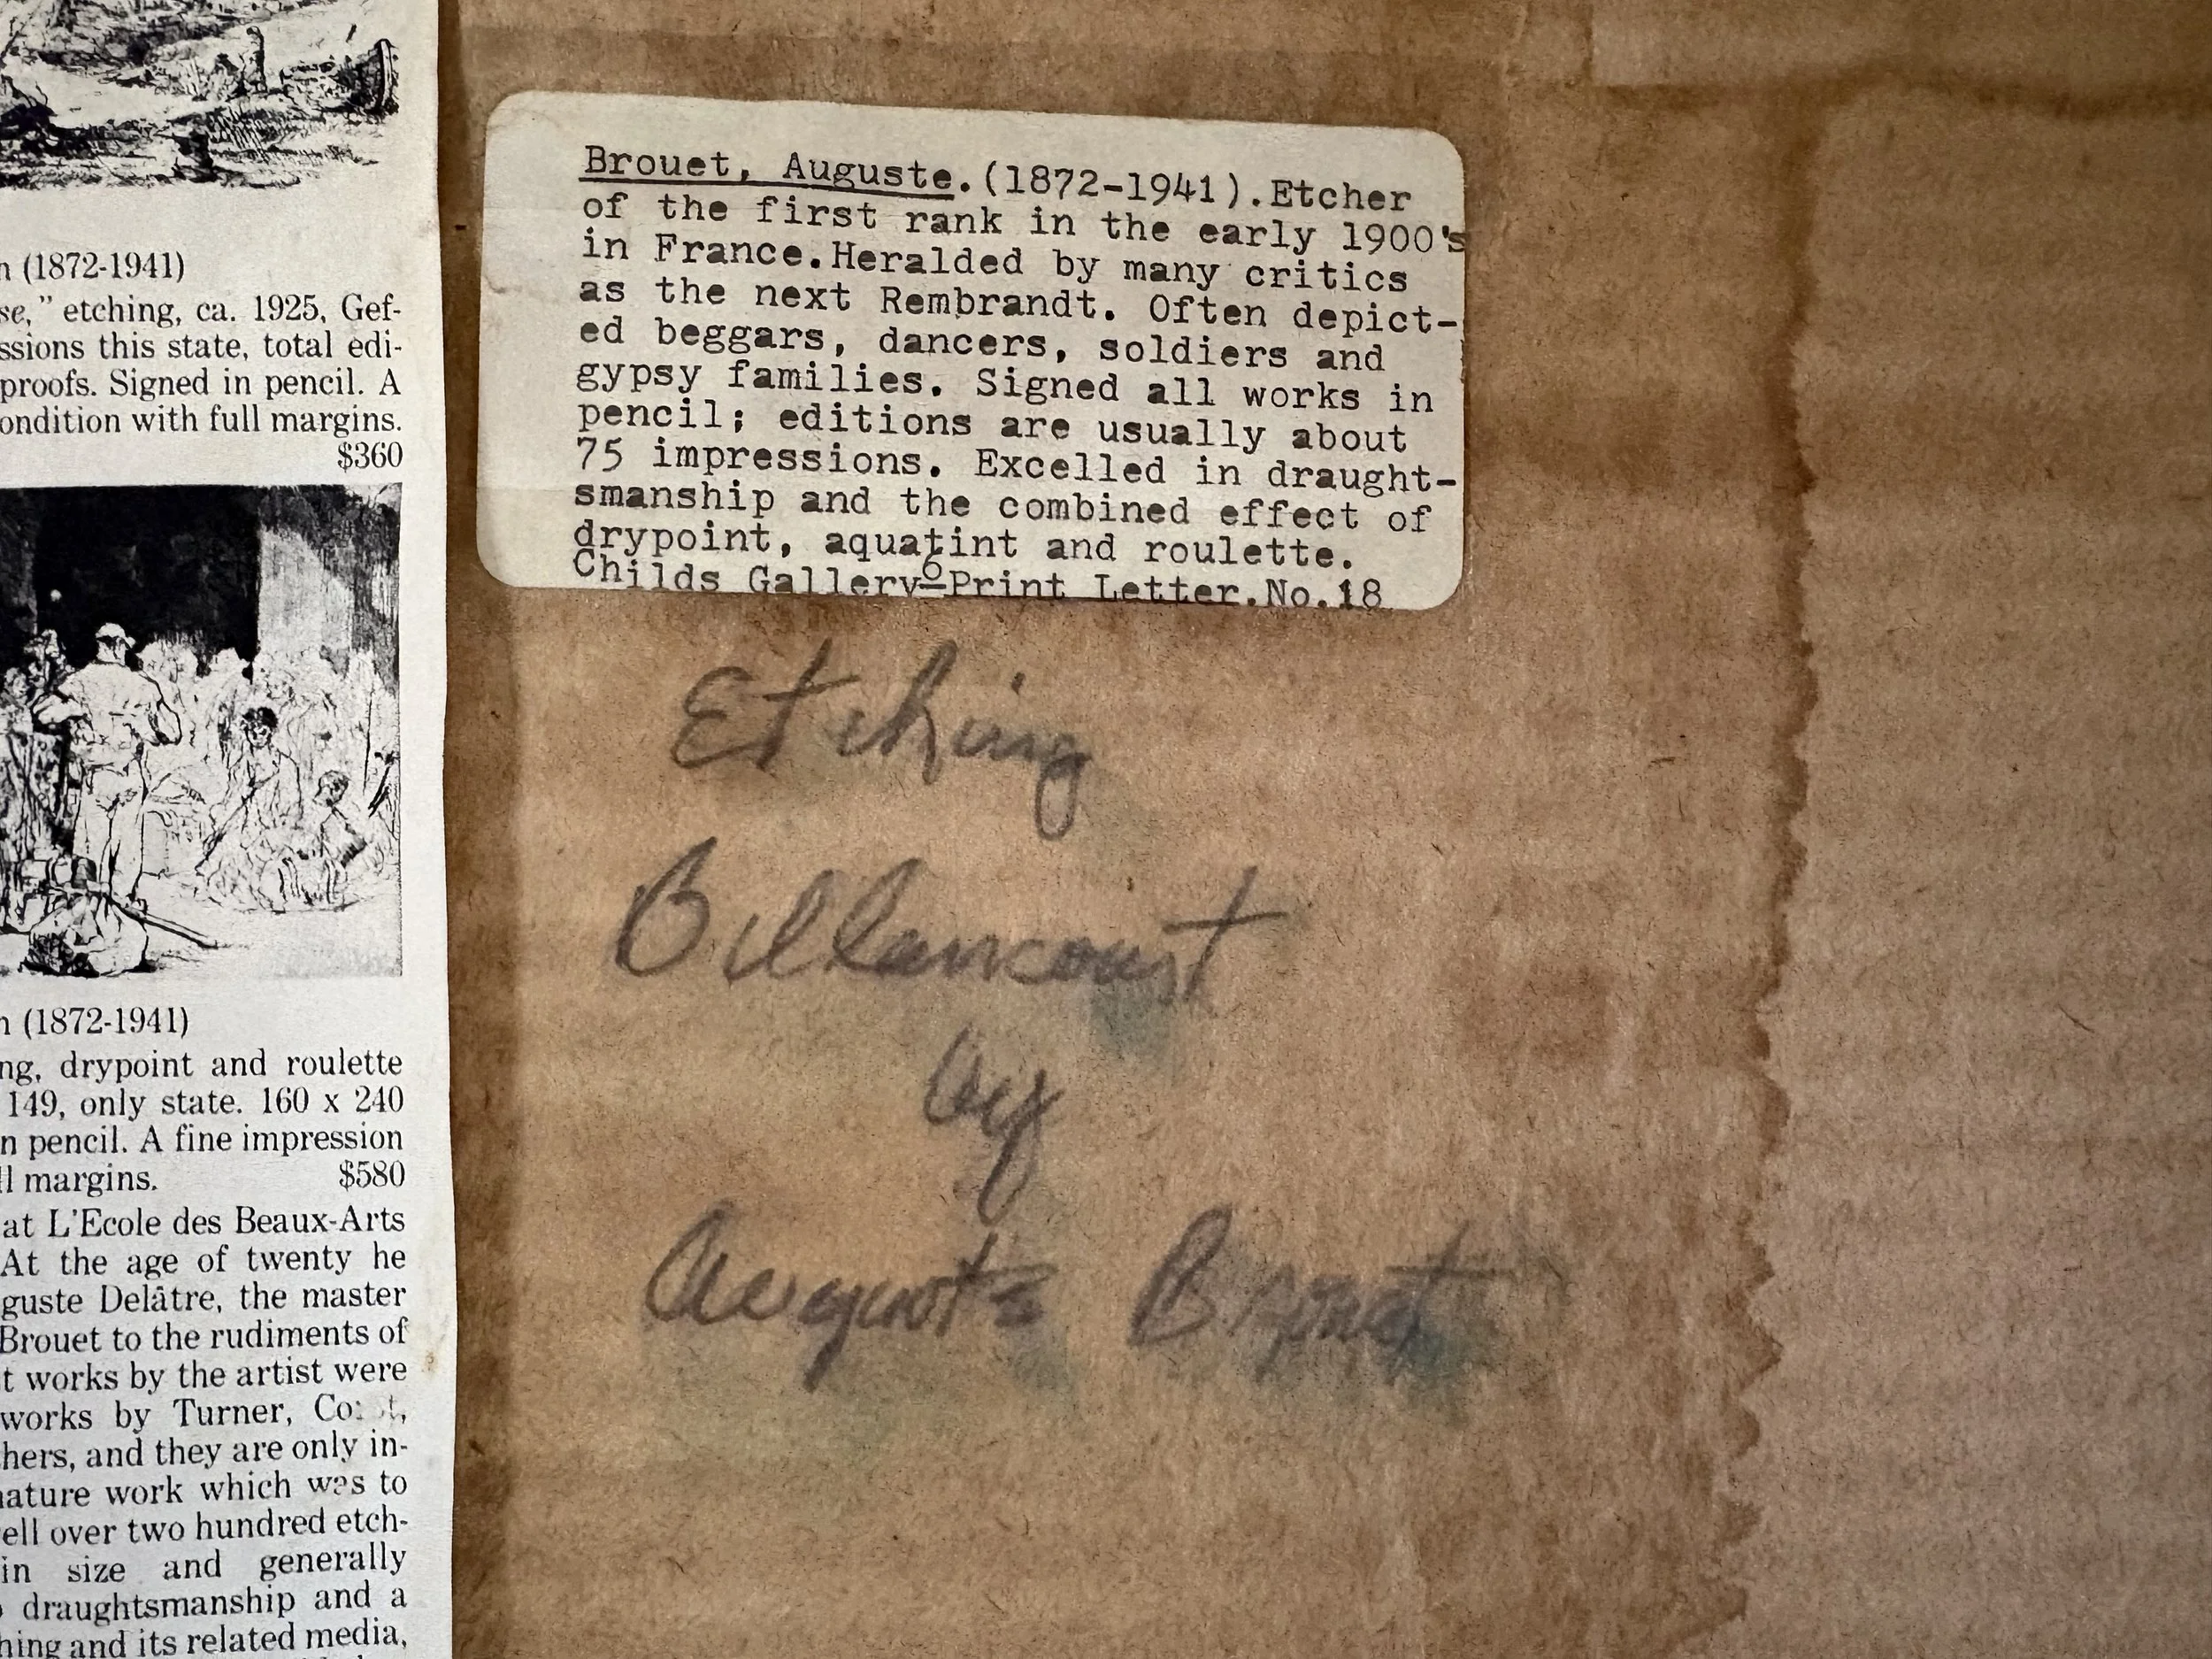 n (1872-1941)
se," etching, ca. 1925, Gef-
ssions this state, total edi-
proofs. Signed in pencil. A
ondition with full margins.
$360
n (1872-1941)
ng, drypoint and roulette
149, only state. 160 x 240
n pencil. A fine impression
ll margins. $580
at L'Ecole des Beaux-Arts
At the age of twenty he
guste Delâtre, the master
Brouet to the rudiments of
t works by the artist were
works by Turner,
hers, and they are only in-
nature work which was to
ell over two hundred etch-
in size and generally
draughtsmanship and a
hing and its related media,
Brouet, Auguste.(1872-1941).Etcher
of the first rank in the early 1900's
in France.Heralded by many critics
as the next Rembrandt. Often depict-
ed beggars, dancers, soldiers and
gypsy families. Signed all works in
pencil; editions are usually about
75 impressions. Excelled in draught-
smanship and the combined effect of
drypoint, aquatint and roulette.
Childs Gallery-Print Letter.No.18
6
Etching
Billancourt
by
Auguste Brouet